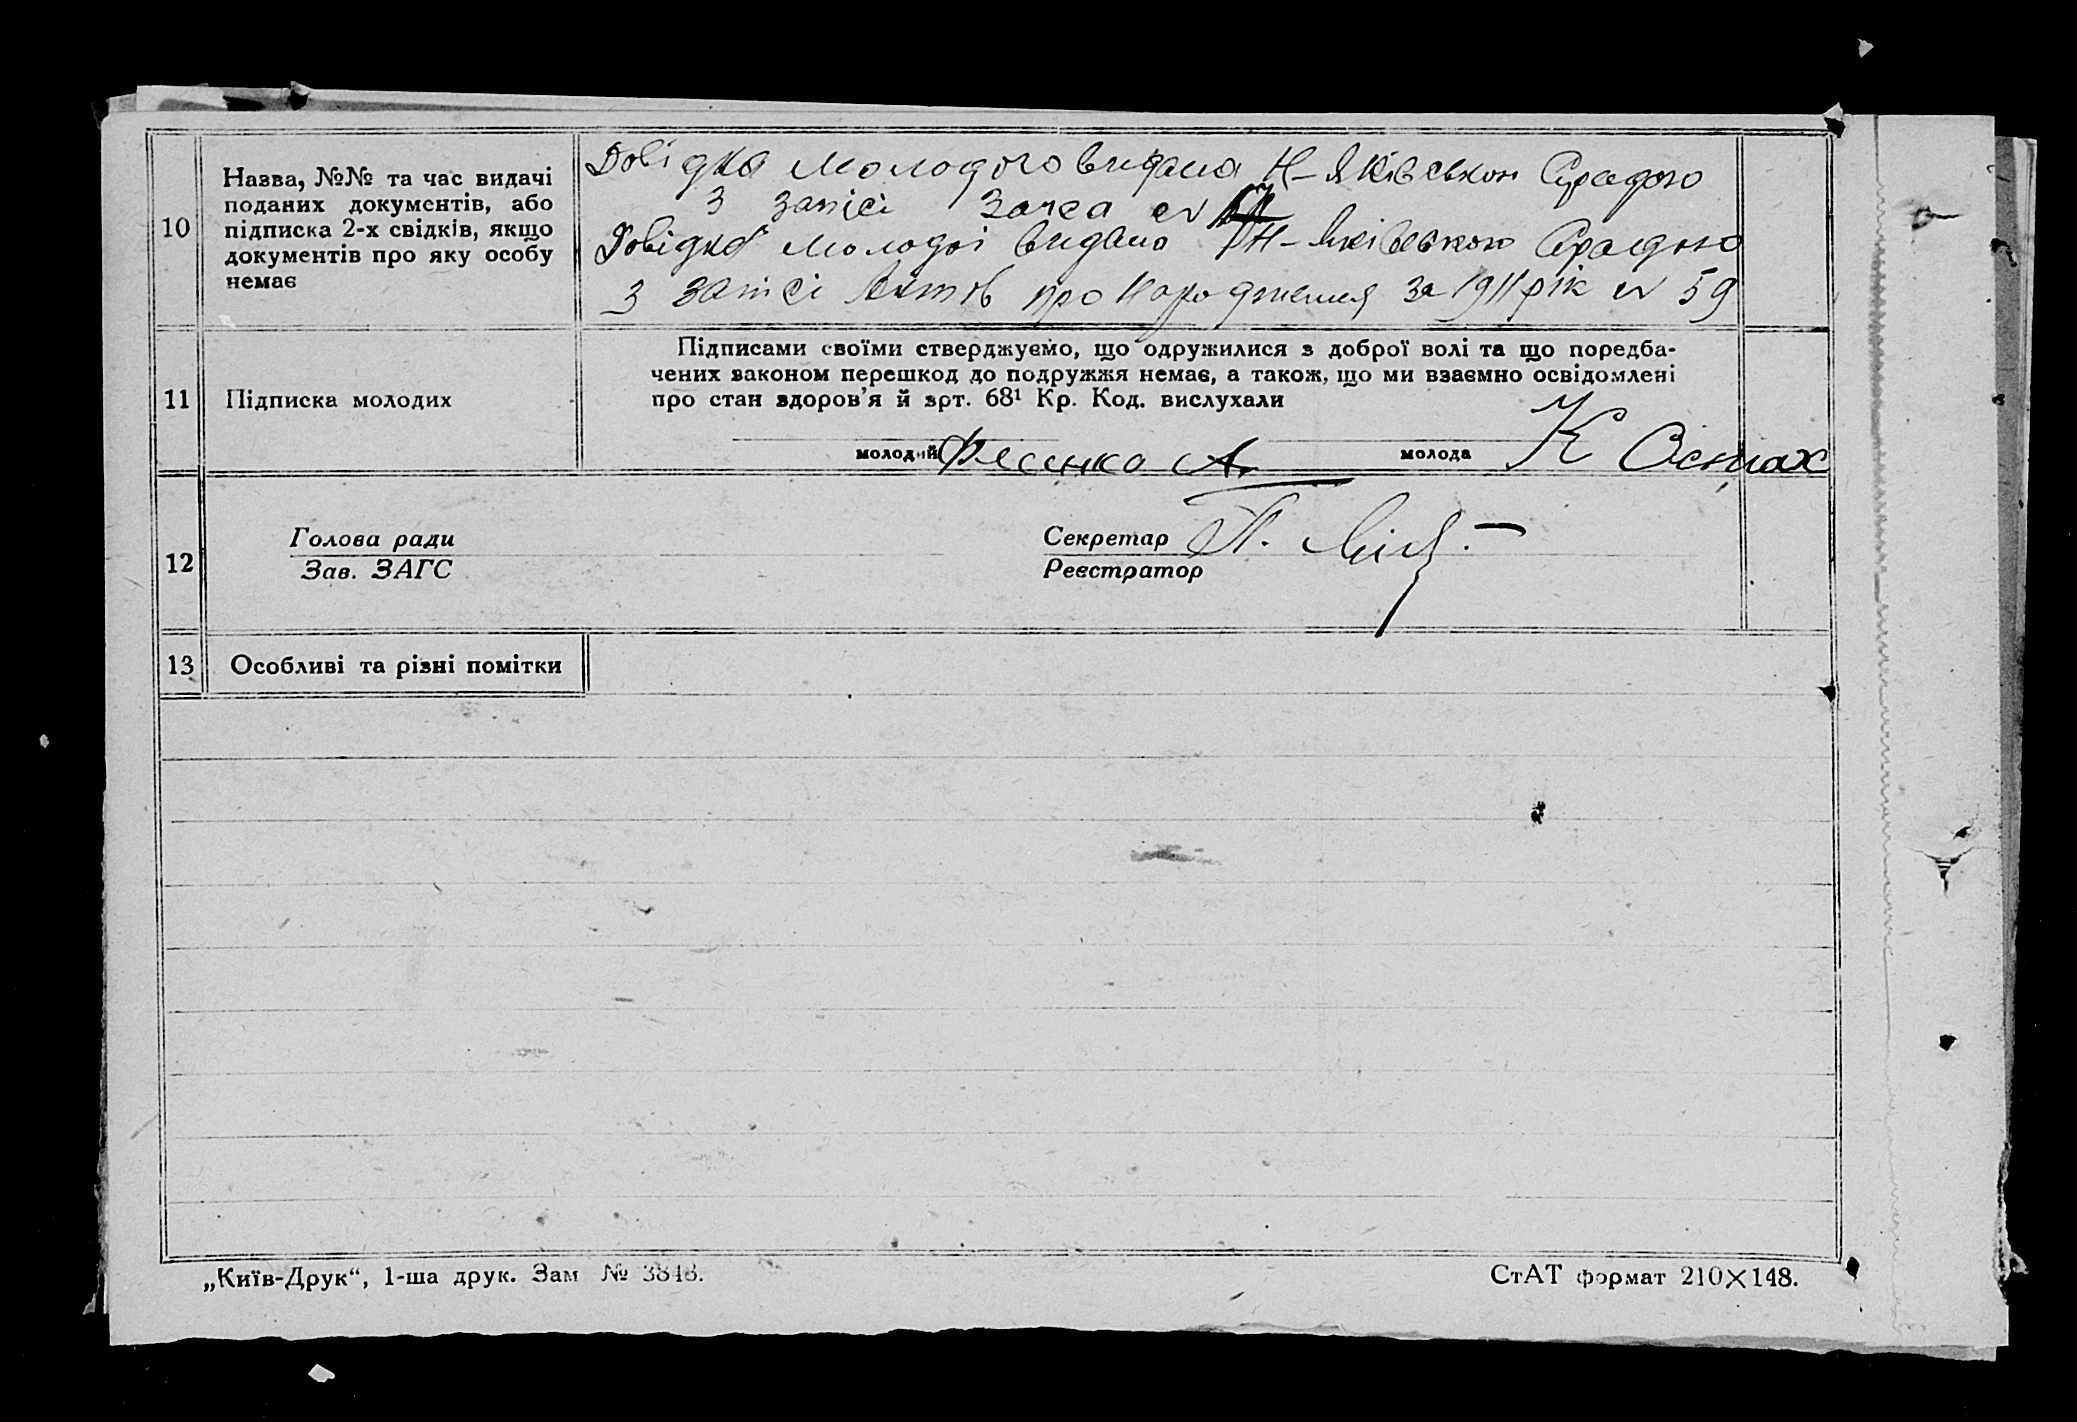 10
Назва, №№ та час видачі
поданих документів, або
підписка 2-х свідків, якщо
документів про яку особу
немає
Довідка молодого видана Н-Яківською С/радою
З запісі Загса №
Довідка молодоі видано Н-Яківською С/радою
З запісі Актов про Народження за 1911 рік № 59
11
Підписка молодих
Підписами своїми стверджуємо, що одружилися з доброї волі та що поредба-
чених законом перешкод до подружжя немає, а також, що ми взаємно освідомлені
про стан здоров'я й арт. 68¹ Кр. Код. вислухали
молодий Фесенко А. молода К
12
Голова ради
Зав. ЗАГС
Секретар П.
Реєстратор
13
Особливі та різні помітки
„Київ-Друк“, 1-ша друк. Зам № 3848.
СтАТ формат 210×148.